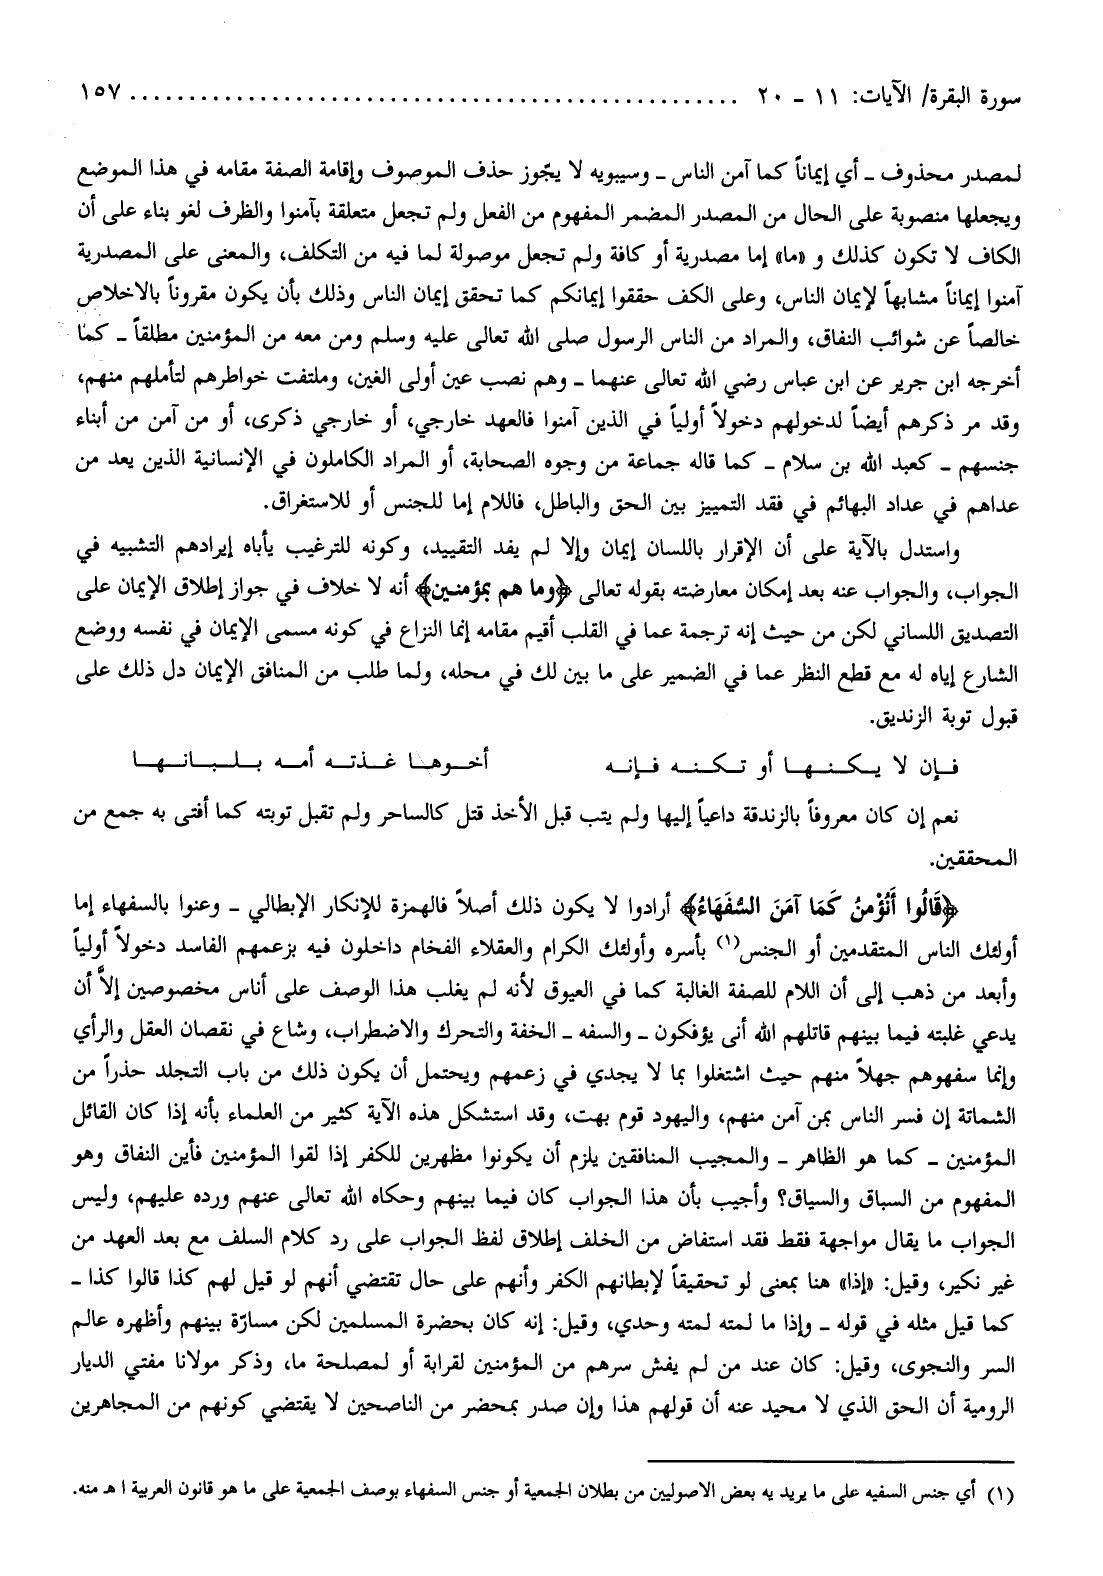 سورة البقرة/ الآيات: ١١ - ٢٠ ................................................ ١٥٧
لمصدر محذوف - أي إيماناً كما آمن الناس - وسيبويه لا يجّوز حذف الموصوف وإقامة الصفة مقامه في هذا الموضع
ويجعلها منصوبة على الحال من المصدر المضمر المفهوم من الفعل ولم تجعل متعلقة بآمنوا والظرف لغو بناء على أن
الكاف لا تكون كذلك و «ما» إما مصدرية أو كافة ولم تجعل موصولة لما فيه من التكلف، والمعنى على المصدرية
آمنوا إيماناً مشابهاً لإيمان الناس، وعلى الكف حققوا إيمانكم كما تحقق إيمان الناس وذلك بأن يكون مقروناً بالاخلاص
خالصاً عن شوائب النفاق، والمراد من الناس الرسول صلى الله تعالى عليه وسلم ومن معه من المؤمنين مطلقاً - كما
أخرجه ابن جرير عن ابن عباس رضي الله تعالى عنهما - وهم نصب عين أولى الغين، وملتفت خواطرهم لتأملهم منهم،
وقد مر ذكرهم أيضاً لدخولهم دخولاً أولياً في الذين آمنوا فالعهد خارجي، أو خارجي ذكرى، أو من آمن من أبناء
جنسهم - كعبد الله بن سلام - كما قاله جماعة من وجوه الصحابة، أو المراد الكاملون في الإنسانية الذين يعد من
عداهم في عداد البهائم في فقد التمييز بين الحق والباطل، فاللام إما للجنس أو للاستغراق.
واستدل بالآية على أن الإقرار باللسان إيمان وإلا لم يفد التقييد، وكونه للترغيب يأباه إيرادهم التشبيه في
الجواب، والجواب عنه بعد إمكان معارضته بقوله تعالى ﴿وما هم بمؤمنين﴾ أنه لا خلاف في جواز إطلاق الإيمان على
التصديق اللساني لكن من حيث إنه ترجمة عما في القلب أقيم مقامه إنما النزاع في كونه مسمى الإيمان في نفسه ووضع
الشارع إياه له مع قطع النظر عما في الضمير على ما بين لك في محله، ولما طلب من المنافق الإيمان دل ذلك على
قبول توبة الزنديق.
فإن لا يكنها أو تكنه فإنه أخوها غذته أمه بلبانها
نعم إن كان معروفاً بالزندقة داعياً إليها ولم يتب قبل الأخذ قتل كالساحر ولم تقبل توبته كما أفتى به جمع من
المحققين.
﴿قَالُوا أَنُؤْمنُ كَمَا آمَنَ السُّفَهَاءُ﴾ أرادوا لا يكون ذلك أصلاً فالهمزة للإنكار الإبطالي - وعنوا بالسفهاء إما
أولئك الناس المتقدمين أو الجنس(١) بأسره وأولئك الكرام والعقلاء الفخام داخلون فيه بزعمهم الفاسد دخولاً أولياً
وأبعد من ذهب إلى أن اللام للصفة الغالبة كما في العيوق لأنه لم يغلب هذا الوصف على أناس مخصوصين إلاَّ أن
يدعي غلبته فيما بينهم قاتلهم الله أنى يؤفكون - والسفه - الخفة والتحرك والاضطراب، وشاع في نقصان العقل والرأي
وإنما سفهوهم جهلاً منهم حيث اشتغلوا بما لا يجدي في زعمهم ويحتمل أن يكون ذلك من باب التجلد حذراً من
الشماتة إن فسر الناس بمن آمن منهم، واليهود قوم بهت، وقد استشكل هذه الآية كثير من العلماء بأنه إذا كان القائل
المؤمنين - كما هو الظاهر - والمجيب المنافقين يلزم أن يكونوا مظهرين للكفر إذا لقوا المؤمنين فأين النفاق وهو
المفهوم من السباق والسياق؟ وأجيب بأن هذا الجواب كان فيما بينهم وحكاه الله تعالى عنهم ورده عليهم، وليس
الجواب ما يقال مواجهة فقط فقد استفاض من الخلف إطلاق لفظ الجواب على رد كلام السلف مع بعد العهد من
غير نكير، وقيل: «إذا» هنا بمعنى لو تحقيقاً لإبطانهم الكفر وأنهم على حال تقتضي أنهم لو قيل لهم كذا قالوا كذا -
كما قيل مثله في قوله - وإذا ما لمته لمته وحدي، وقيل: إنه كان بحضرة المسلمين لكن مسارّة بينهم وأظهره عالم
السر والنجوى، وقيل: كان عند من لم يفش سرهم من المؤمنين لقرابة أو لمصلحة ما، وذكر مولانا مفتي الديار
الرومية أن الحق الذي لا محيد عنه أن قولهم هذا وإن صدر بمحضر من الناصحين لا يقتضي كونهم من المجاهرين
(١) أي جنس السفيه على ما يريد يه بعض الاصوليين من بطلان الجمعية أو جنس السفهاء بوصف الجمعية على ما هو قانون العربية ا هـ منه.